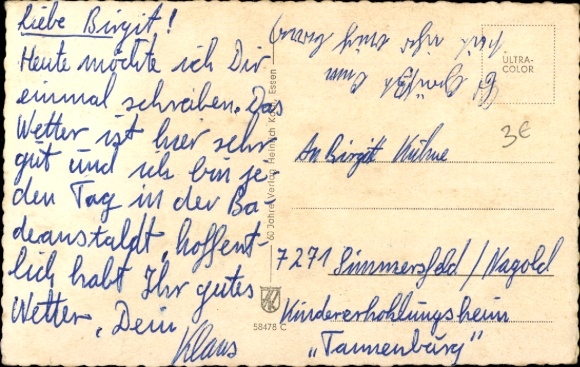 Liebe Birgit!
Heute möchte ich Dir
einmal schreiben. Das
Wetter ist hier sehr
gut und ich bin je-
den Tag in der Ba-
deanstaldt, hoffent-
lich habt Ihr gutes
Wetter. Dein
Klaus
60 Jahre Verlag Heinrich Koch Essen
58478 C
ULTRA-
COLOR
3€
An Birgitt Kühne
7271 Simmersfeld / Nagold
Kindererhohlungsheim
"Tannenburg"